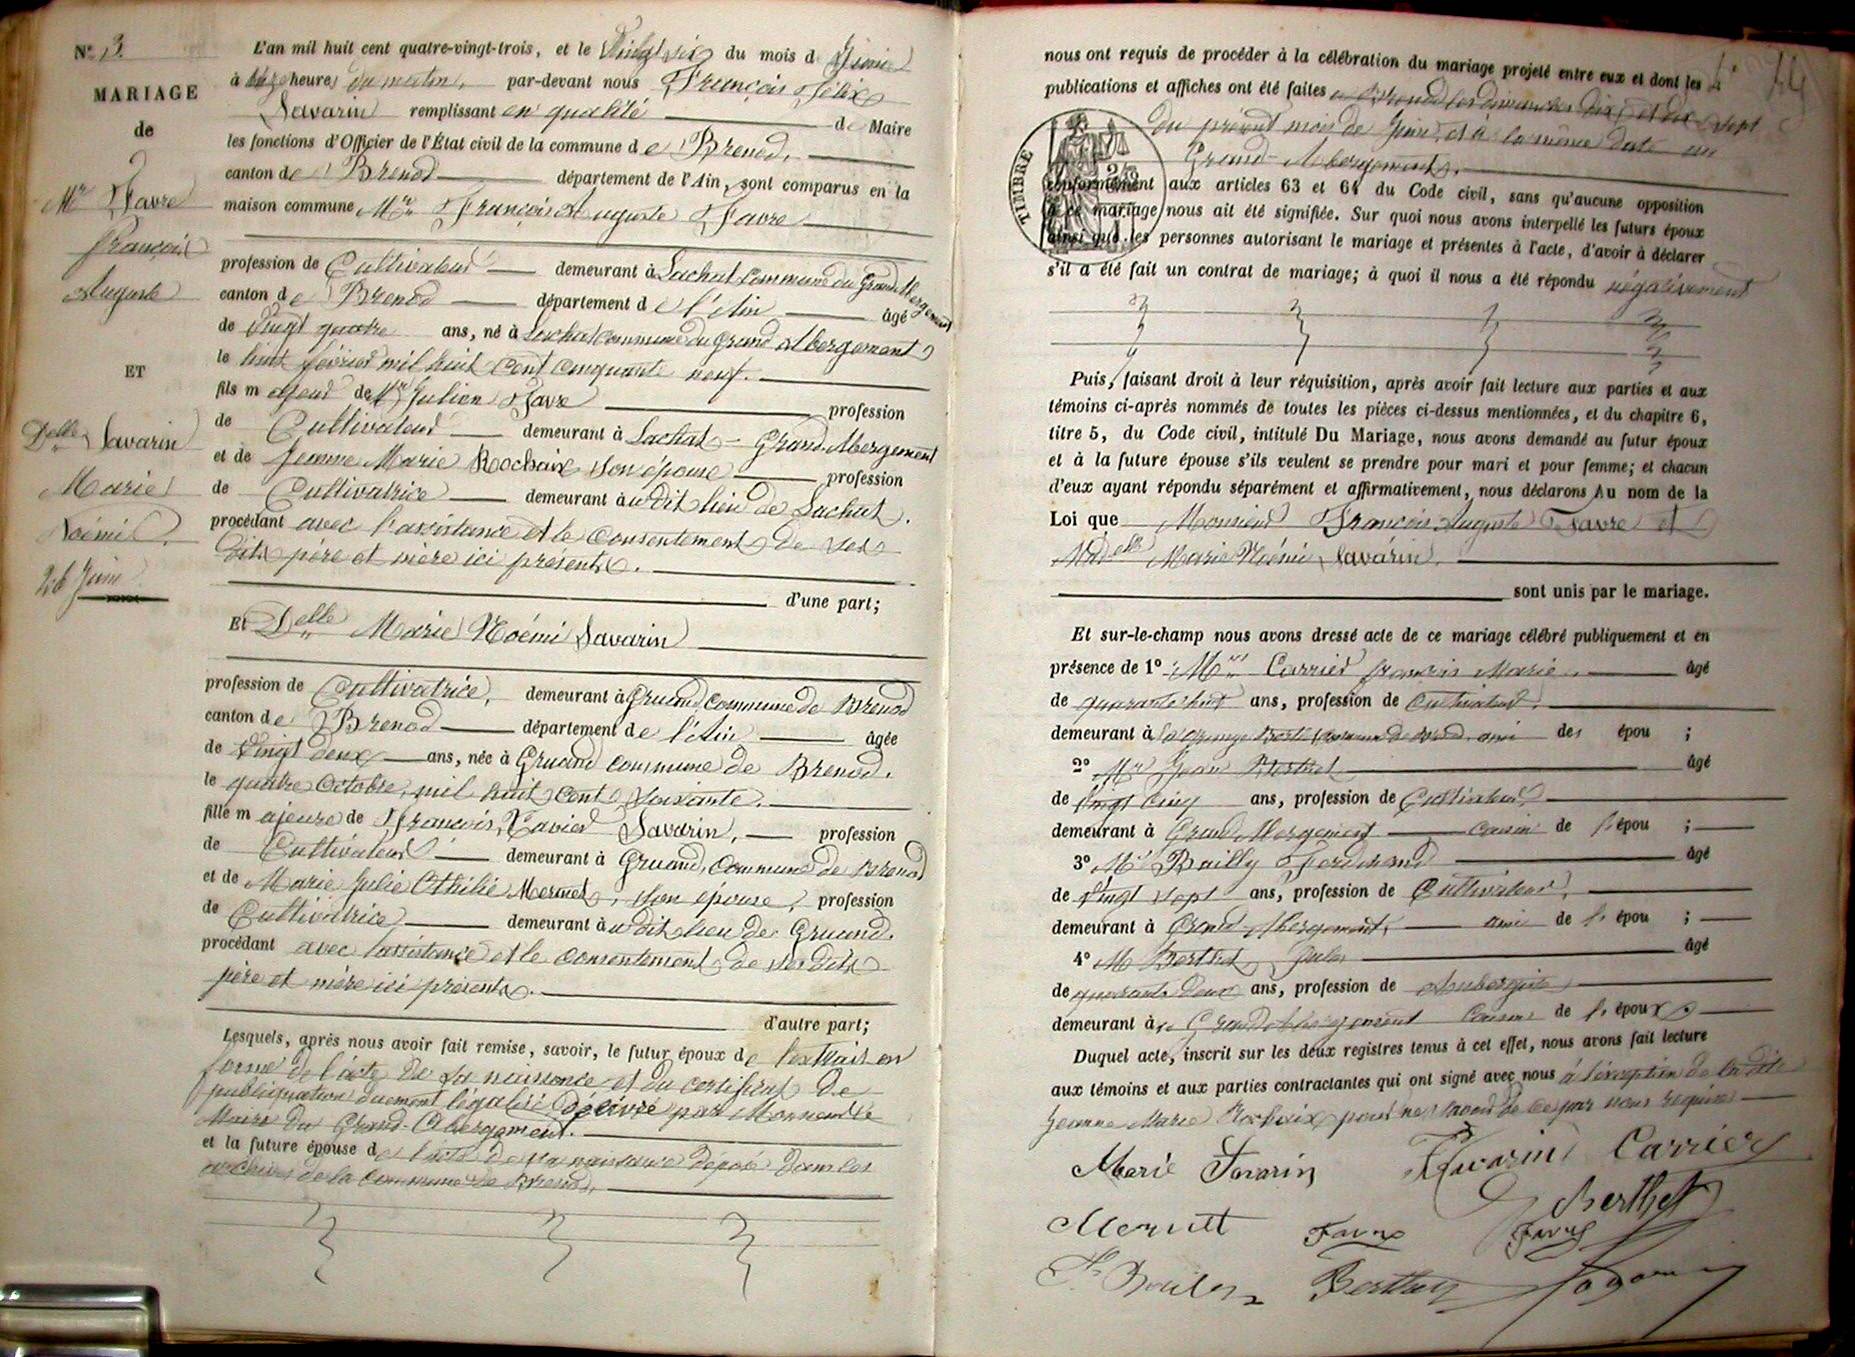 N° 3
MARIAGE
de
Mr Favre
François
Auguste
ET
Delle Savarin
Marie
Noémi
26 Juin
L'an mil huit cent quatre-vingt-trois, et le Vingt six du mois de Juin
à heures du matin, par-devant nous François Félix
Savarin remplissant en qualité de Maire
les fonctions d'Officier de l'État civil de la commune de Brenod,
canton de Brenod département de l'Ain, sont comparus en la
maison commune Mr François Auguste Favre
profession de Cultivateur demeurant à Lachat commune du Grand Abergement
canton de Brenod département de l'Ain âgé
de Vingt quatre ans, né à Lachat commune du Grand Abergement
le huit février mil huit cent cinquante neuf.
fils majeur de Mr Julien Favre profession
de Cultivateur demeurant à Lachat - Grand-Abergement
et de Jeanne Marie Rochaix son épouse profession
de Cultivatrice demeurant audit lieu de Lachat.
procédant avec l'assistance et le consentement de ses
dits père et mère ici présents.
d'une part;
Et Delle Marie Noémi Savarin
profession de Cultivatrice, demeurant à Gruand commune de Brenod
canton de Brenod département de l'Ain âgée
de Vingt deux ans, née à Gruand commune de Brenod.
le quatre Octobre, mil huit cent soixante.
fille majeure de François, Xavier Savarin, profession
de Cultivateur demeurant à Gruand, Commune de Brenod
et de Marie Julie Othilie Mermet, son épouse, profession
de Cultivatrice demeurant audit lieu de Gruand.
procédant avec l'assistance et le consentement de ses dits
père et mère ici présents.
d'autre part;
Lesquels, après nous avoir fait remise, savoir, le futur époux de l'extrait en
forme de l'acte de sa naissance et du certificat de
publication duement légalisé délivré par Monsieur le
Maire du Grand-Abergement.
et la future épouse de l'acte de sa naissance déposé dans les
archives de la Commune de Brenod,
nous ont requis de procéder à la célébration du mariage projeté entre eux et dont les
publications et affiches ont été faites à Brenod les dimanches dix et dix sept
du présent mois de Juin, et à la même date au
Grand-Abergement.
TIMBRE
conformément aux articles 63 et 64 du Code civil, sans qu'aucune opposition
à ce mariage nous ait été signifiée. Sur quoi nous avons interpellé les futurs époux
ainsi que les personnes autorisant le mariage et présentes à l'acte, d'avoir à déclarer
s'il a été fait un contrat de mariage; à quoi il nous a été répondu négativement
Puis, faisant droit à leur réquisition, après avoir fait lecture aux parties et aux
témoins ci-après nommés de toutes les pièces ci-dessus mentionnées, et du chapitre 6,
titre 5, du Code civil, intitulé Du Mariage, nous avons demandé au futur époux
et à la future épouse s'ils veulent se prendre pour mari et pour femme; et chacun
d'eux ayant répondu séparément et affirmativement, nous déclarons Au nom de la
Loi que Monsieur François Auguste Favre et
Melle Marie Noémi Savarin.
sont unis par le mariage.
Et sur-le-champ nous avons dressé acte de ce mariage célébré publiquement et en
présence de 1° Mr Carrier françois Marie. âgé
de quarante huit ans, profession de Cultivateur.
demeurant à la Grange commune de Brenod ami des épou ;
2° Mr Jean Berthet âgé
de Vingt cinq ans, profession de Cultivateur
demeurant à Grand Abergement cousin de l'épou ;
3° Mr Bailly Ferdinand âgé
de Vingt sept ans, profession de Cultivateur.
demeurant à Grand Abergement, ami de l'épou ;
4° M Berthet, Jules âgé
de quarante deux ans, profession de Aubergiste
demeurant à Grand Abergement Cousin de l'époux
Duquel acte, inscrit sur les deux registres tenus à cet effet, nous avons fait lecture
aux témoins et aux parties contractantes qui ont signé avec nous à l'exception de la dite
Jeanne Marie Rochaix pour ne savoir de ce par nous requise
Marie Savarin Savarin Carrier
Berthet
Mermet Favre Favre
Berthet